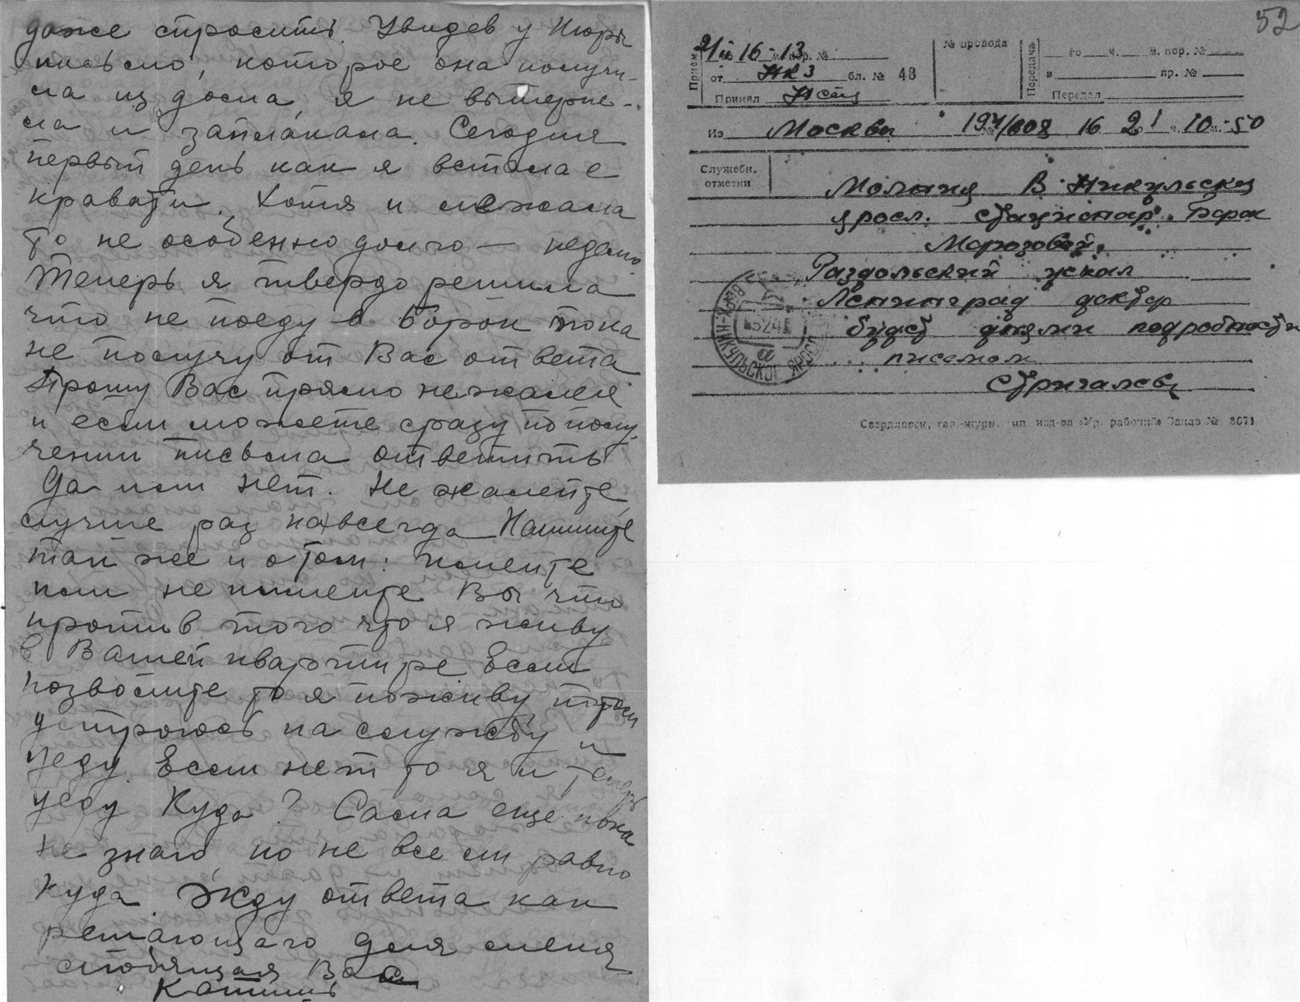 даже спросить. Увидев у Нюры
письмо, которое она получи-
ла из дома, я не вытерпе-
ла и заплакала. Сегодня
первый день как я встала с
кравати. Хотя и лежала
то не особенно долго — недел.
Теперь я твердо решила
что не поеду в Борок пока
не получу от Вас ответа
Прошу Вас прямо не жалея
и если можете сразу по полу
чении письма ответить
Да или нет. Не жалейте,
лучше раз навсегда Напишите
так же и о том: имеете
или не имеете Вы что
против того что я живу
в Вашей квартире Если
позволите то я поживу пока
устроюсь на службу и
уеду. Если нет то я и теперь
уеду Куда? Сама еще пока
не знаю но не все ли равно
куда. Жду ответа как
решающаго для меня
любящая Вас
52
Прием
21 16-13 м. пор. №
от НКЗ бл. № 43
Принял
№ провода
Передача
го ч. м. пор. №
в пр. №
Передал
Из Москвы 197/1008 16 21 ч. 10 м. 50
Служебн. отметки
Молния В-Никульское
яросл. Стационар Борок
Морозовой
Раздольский искал
Ленинград доктор
будет днями подробности
писемом
Стригалев
Свердловск, газ.-журн. тип изд-ва «Ур. рабочий» Заказ № 8671